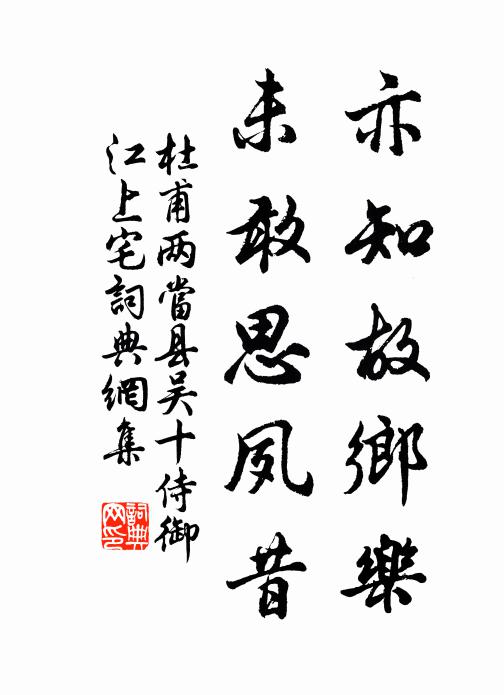 亦知故鄉樂
未敢思夙昔
杜甫两當县吴十侍御
江上宅詞典網集
詞典
网印